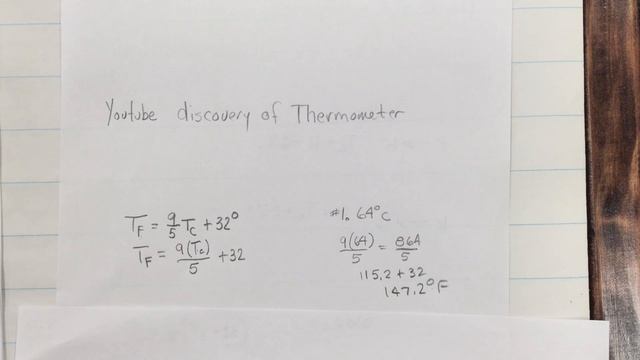 Youtube discovery of Thermometer
T_F = 9/5 T_C + 32°
T_F = 9(T_C)/5 + 32
#1. 64°C
9(64)/5 = 864/5
115.2 + 32
147.2°F